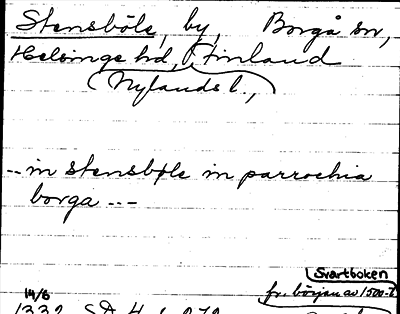 Stensböle, by, Borgå sn,
Helsinge hd, Finland
(Nylands l.,
-- in stensbøle in parrochia
borga ---
Svartboken
14/6 fr. början av 1500-t
1332 SD 4 s